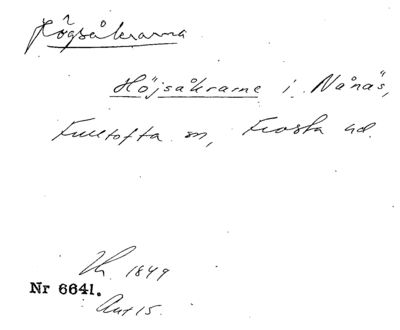 Högsåkrarna
Höjsåkrarne i Nånäs,
Fulltofta sn, Frosta hd.
Lh. 1849
Nr 6641.
Akt 15.